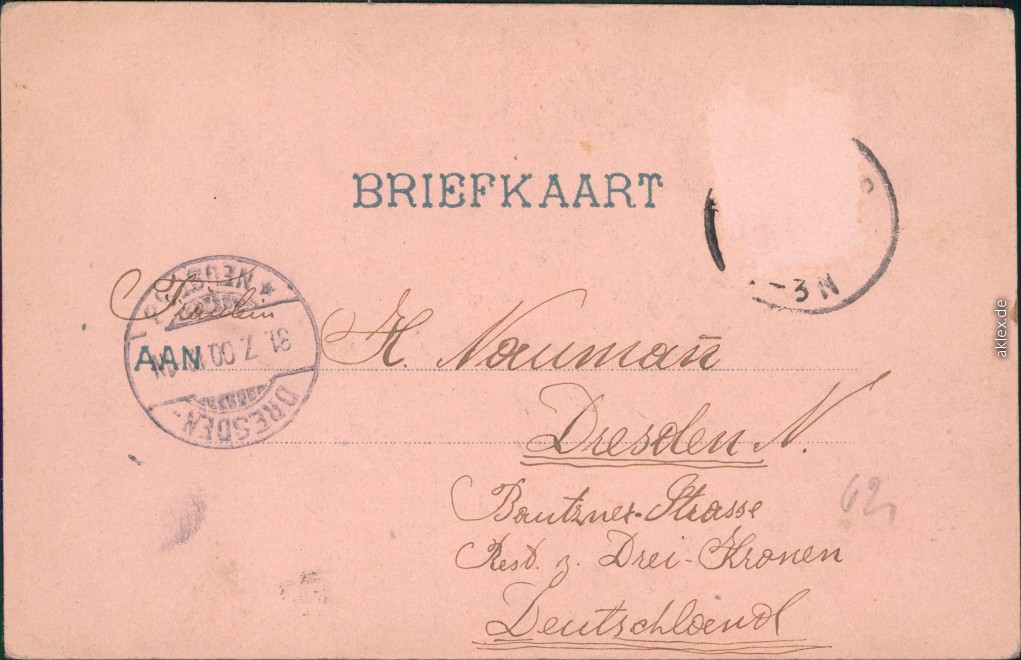 BRIEFKAART
3 N
Fräulein
AAN
H. Naumann̄
Dresden N.
Bautzner-Strasse
Rest. z. Drei-Kronen
Deutschland
DRESDEN-
NEUSTADT
31. 7. 00
62
aklex.de